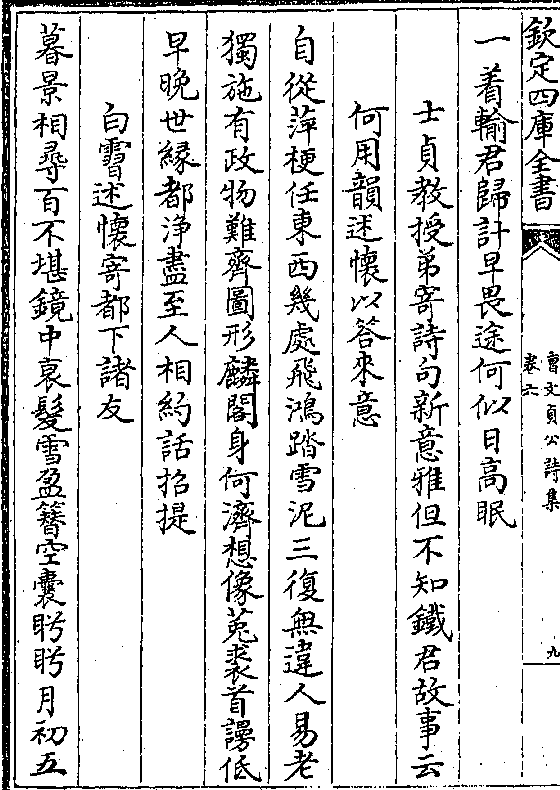 欽定四庫全書
曹文貞公詩集
卷六
九
一着輸君歸計早畏途何似日高眠
士貞教授弟寄詩句新意雅但不知鐵君故事云
何用韻述懷以答來意
自從萍梗任東西幾處飛鴻踏雪泥三復無違人易老
獨施有政物難齊圖形麟閣身何濟想像菟裘首謾低
早晚世緣都淨盡至人相約話招提
白雪述懷寄都下諸友
暮景相尋百不堪鏡中衰髮雪盈簪空囊盻盻月初五